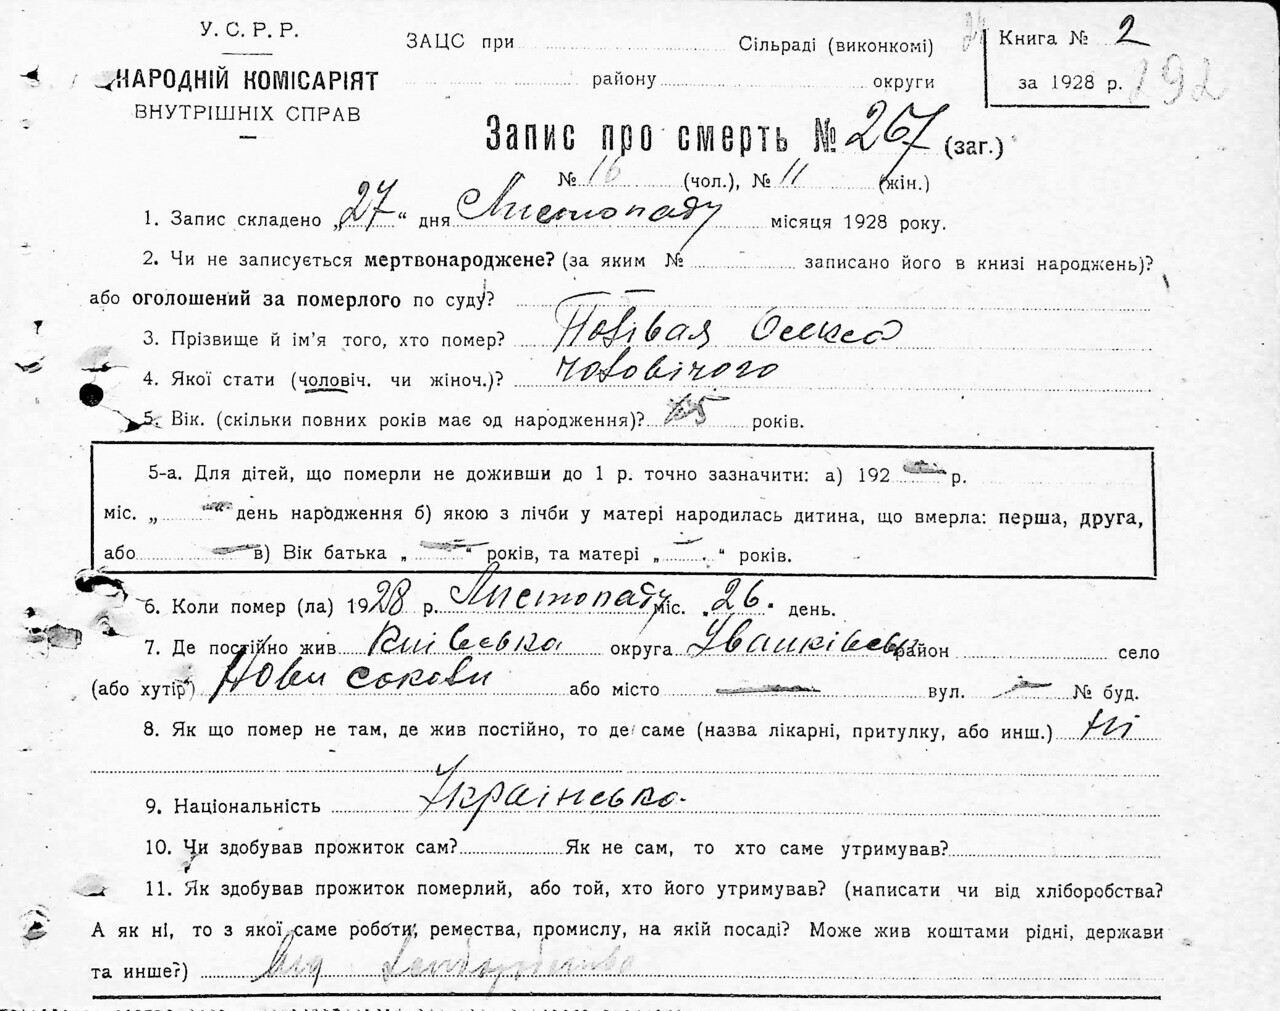 У. С. Р. Р.
НАРОДНІЙ КОМІСАРІЯТ
ВНУТРІШНІХ СПРАВ
ЗАЦС при Сільраді (виконкомі)
району округи
Книга № 2
за 1928 р. 192
Запис про смерть № 267 (заг.)
№ 16 (чол.), № 11 (жін.)
1. Запис складено „27“ дня Листопаду місяця 1928 року.
2. Чи не записується мертвонароджене? (за яким № записано його в книзі народжень)?
або оголошений за померлого по суду?
3. Прізвище й ім’я того, хто помер?
4. Якої стати (чоловіч. чи жіноч.)? чоловічого
5. Вік. (скільки повних років має од народження)? років.
5-а. Для дітей, що померли не доживши до 1 р. точно зазначити: а) 192 р.
міс. „ день народження б) якою з лічби у матері народилась дитина, що вмерла: перша, друга,
або в) Вік батька „ “ років, та матері „ “ років.
6. Коли помер (ла) 1928 р. Листопаду міс. „26“ день.
7. Де постійно жив Київська округа Іванківськ район село
(або хутір) Нови Соколи або місто вул. № буд.
8. Як що помер не там, де жив постійно, то де саме (назва лікарні, притулку, або инш.) Ні
9. Національність Українсько.
10. Чи здобував прожиток сам? Як не сам, то хто саме утримував?
11. Як здобував прожиток померлий, або той, хто його утримував? (написати чи від хліборобства?
А як ні, то з якої саме роботи, ремества, промислу, на якій посаді? Може жив коштами рідні, держави
та инше?) Від